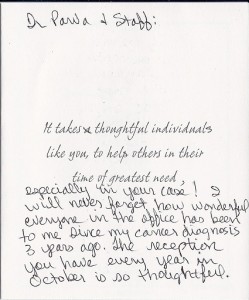 Dr Parva & Staff:
It takes thoughtful individuals
like you, to help others in their
time of greatest need
especially in your case! I
will never forget how wonderful
everyone in the office has been
to me since my cancer diagnosis
3 years ago. The reception
you have every year in
October is so thoughtful.